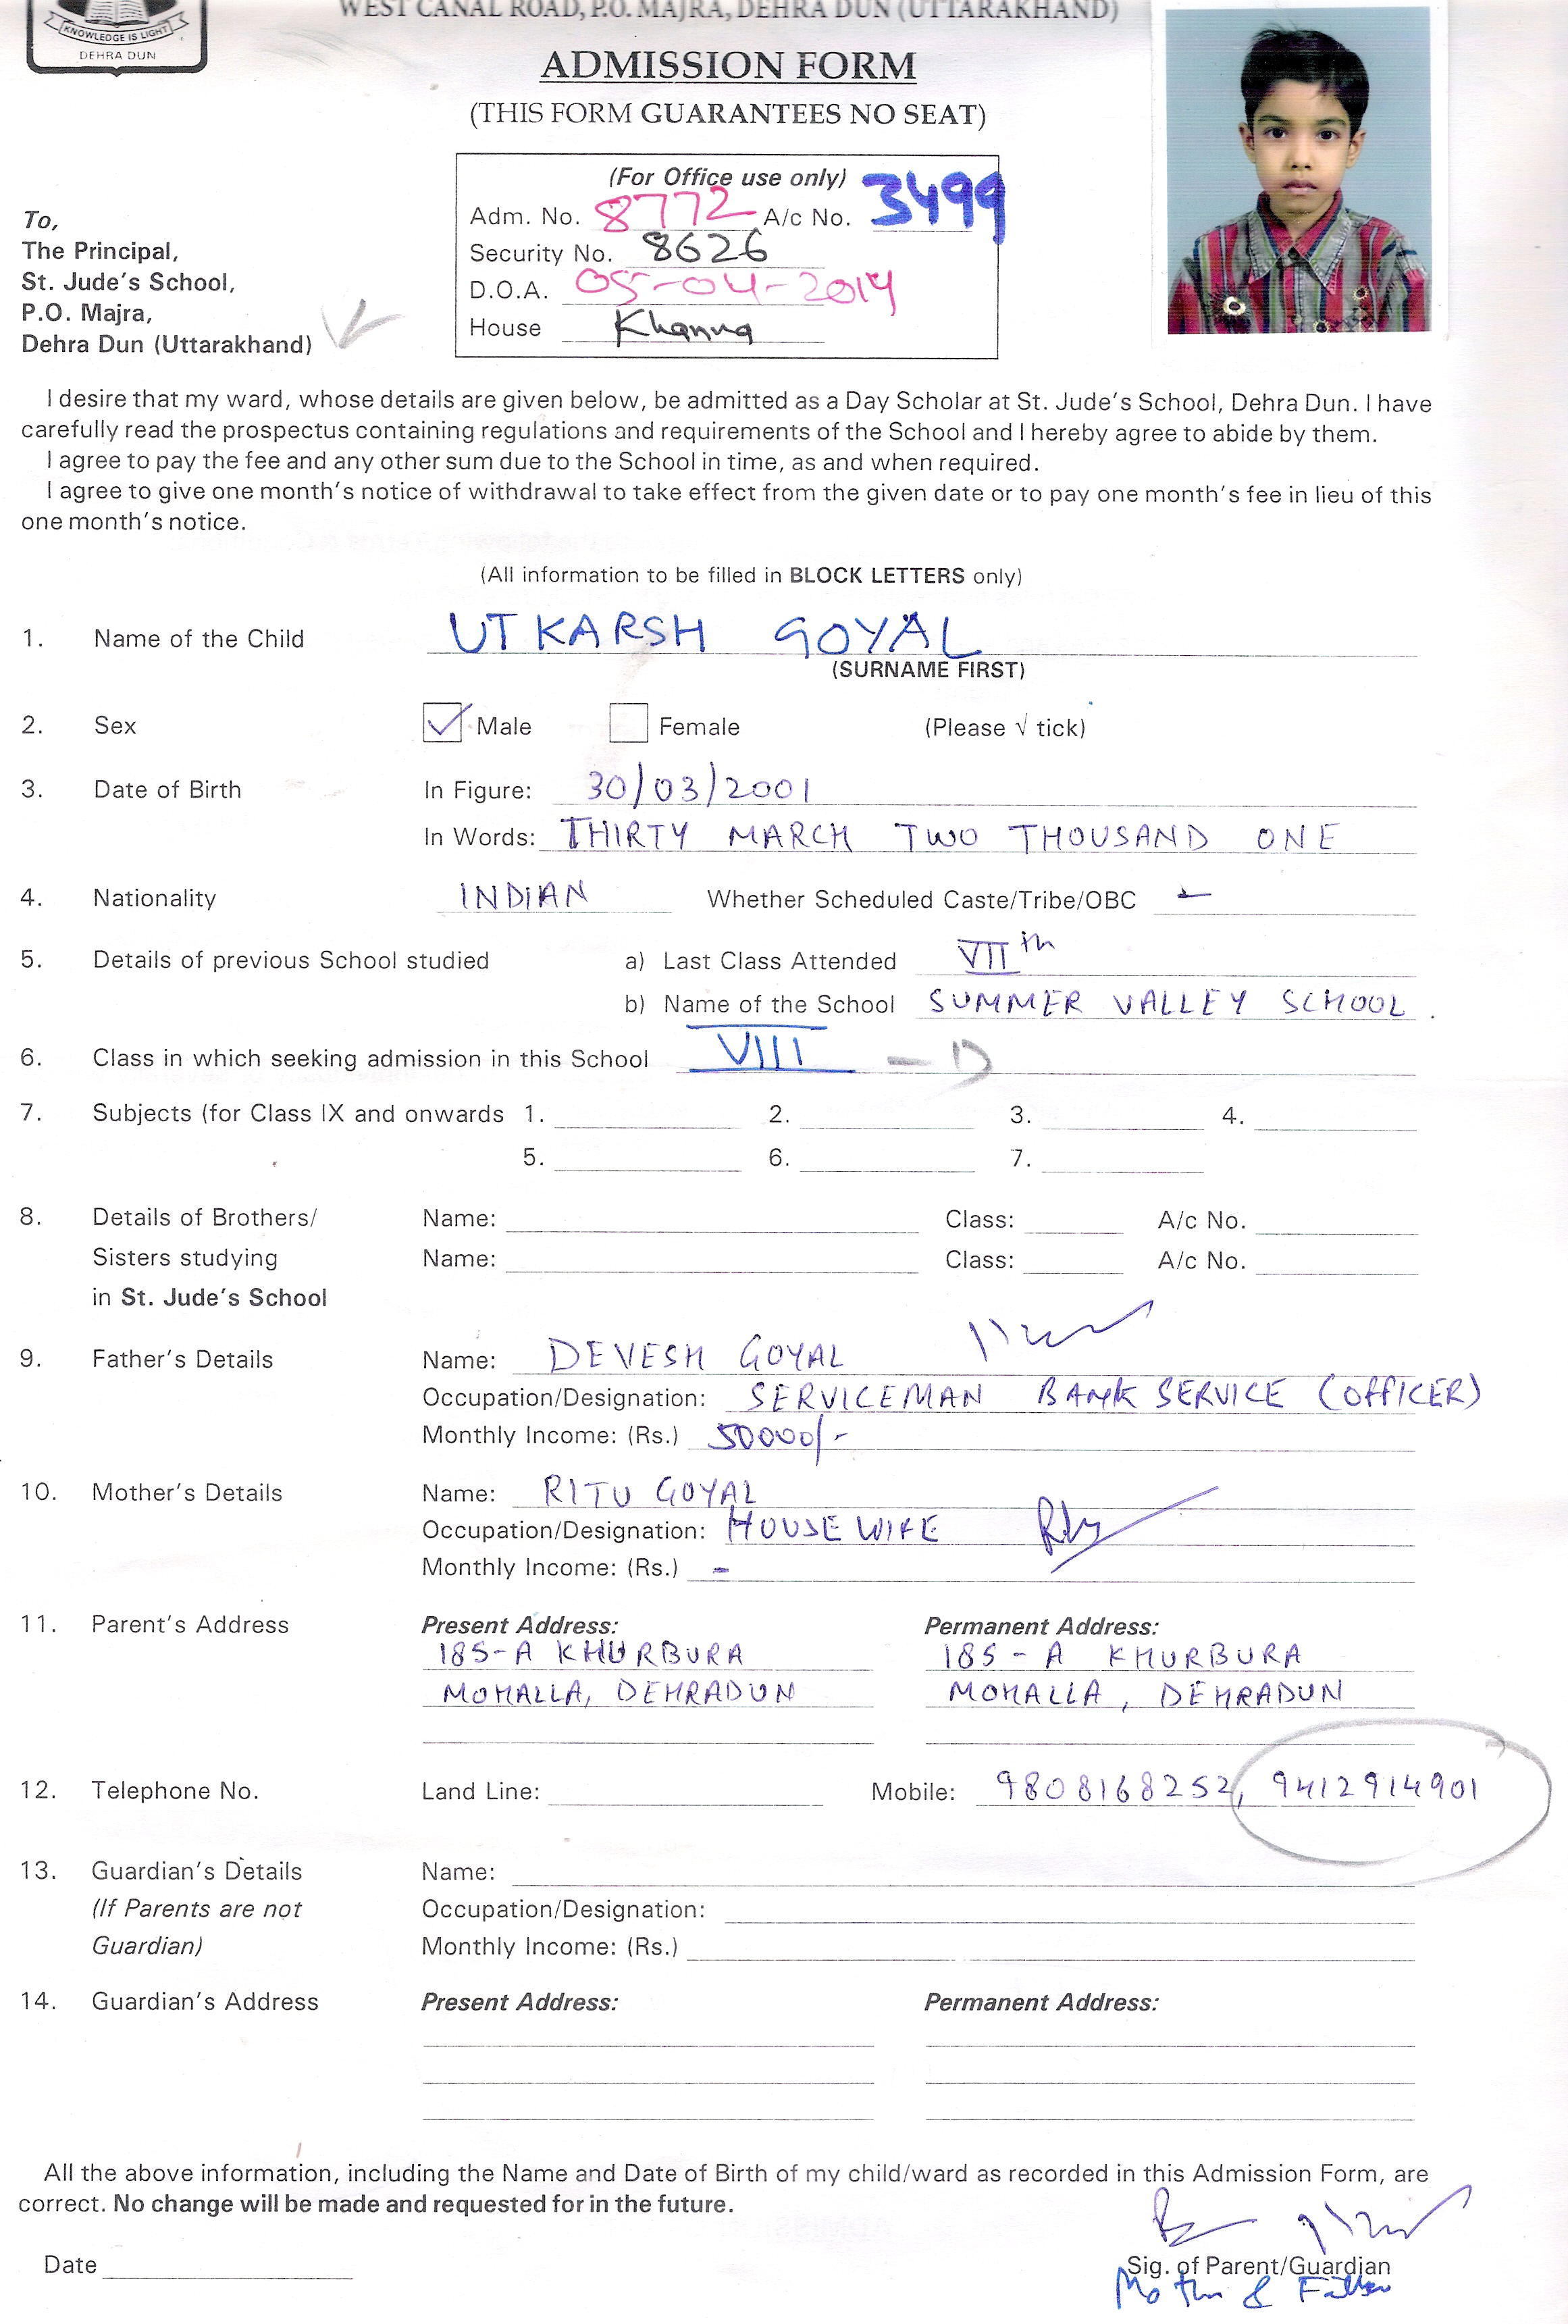 KNOWLEDGE IS LIGHT
DEHRA DUN
WEST CANAL ROAD, P.O. MAJRA, DEHRA DUN (UTTARAKHAND)
ADMISSION FORM
(THIS FORM GUARANTEES NO SEAT)
(For Office use only)
Adm. No. 8772 A/c No. 3499
Security No. 8626
D.O.A. 05-04-2014
House Khanna
To,
The Principal,
St. Jude's School,
P.O. Majra,
Dehra Dun (Uttarakhand)
I desire that my ward, whose details are given below, be admitted as a Day Scholar at St. Jude's School, Dehra Dun. I have
carefully read the prospectus containing regulations and requirements of the School and I hereby agree to abide by them.
I agree to pay the fee and any other sum due to the School in time, as and when required.
I agree to give one month's notice of withdrawal to take effect from the given date or to pay one month's fee in lieu of this
one month's notice.
(All information to be filled in BLOCK LETTERS only)
1. Name of the Child UTKARSH GOYAL
(SURNAME FIRST)
2. Sex Male Female (Please √ tick)
3. Date of Birth In Figure: 30/03/2001
In Words: THIRTY MARCH TWO THOUSAND ONE
4. Nationality INDIAN Whether Scheduled Caste/Tribe/OBC -
5. Details of previous School studied a) Last Class Attended VIIth
b) Name of the School SUMMER VALLEY SCHOOL.
6. Class in which seeking admission in this School VIII - D
7. Subjects (for Class IX and onwards 1. 2. 3. 4.
5. 6. 7.
8. Details of Brothers/ Name: Class: A/c No.
Sisters studying Name: Class: A/c No.
in St. Jude's School
9. Father's Details Name: DEVESH GOYAL
Occupation/Designation: SERVICEMAN BANK SERVICE (OFFICER)
Monthly Income: (Rs.) 50000/-
10. Mother's Details Name: RITU GOYAL
Occupation/Designation: HOUSE WIFE
Monthly Income: (Rs.) -
11. Parent's Address Present Address: Permanent Address:
185-A KHURBURA 185 - A KHURBURA
MOHALLA, DEHRADUN MOHALLA, DEHRADUN
12. Telephone No. Land Line: Mobile: 9808168252, 9412914901
13. Guardian's Details Name:
(If Parents are not Occupation/Designation:
Guardian) Monthly Income: (Rs.)
14. Guardian's Address Present Address: Permanent Address:
All the above information, including the Name and Date of Birth of my child/ward as recorded in this Admission Form, are
correct. No change will be made and requested for in the future.
Date Sig. of Parent/Guardian
Mother & Father